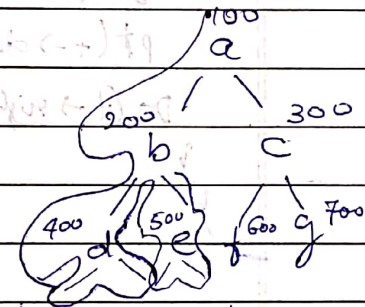 100
a
200 300
b c
400 500 600 700
d e f g